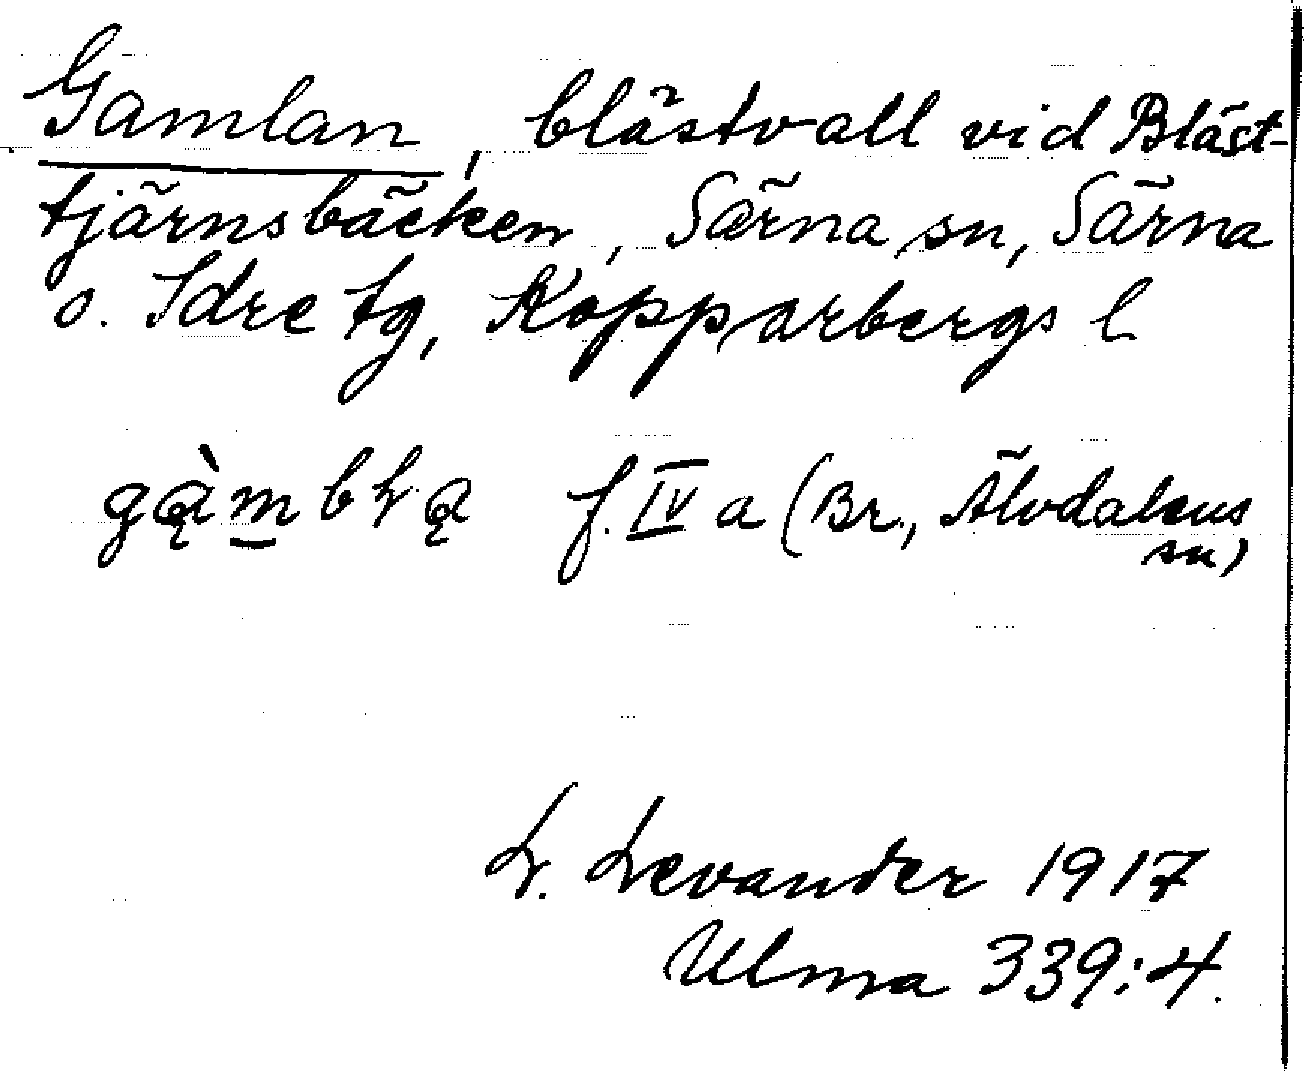 Gamlan, blästvall vid Bläst-
tjärnsbäcken, Särna sn, Särna
o. Idre tg, Kopparbergs l
f. IV a (Br., Älvdalens
sn)
L. Levander 1917
Ulma 339:4.